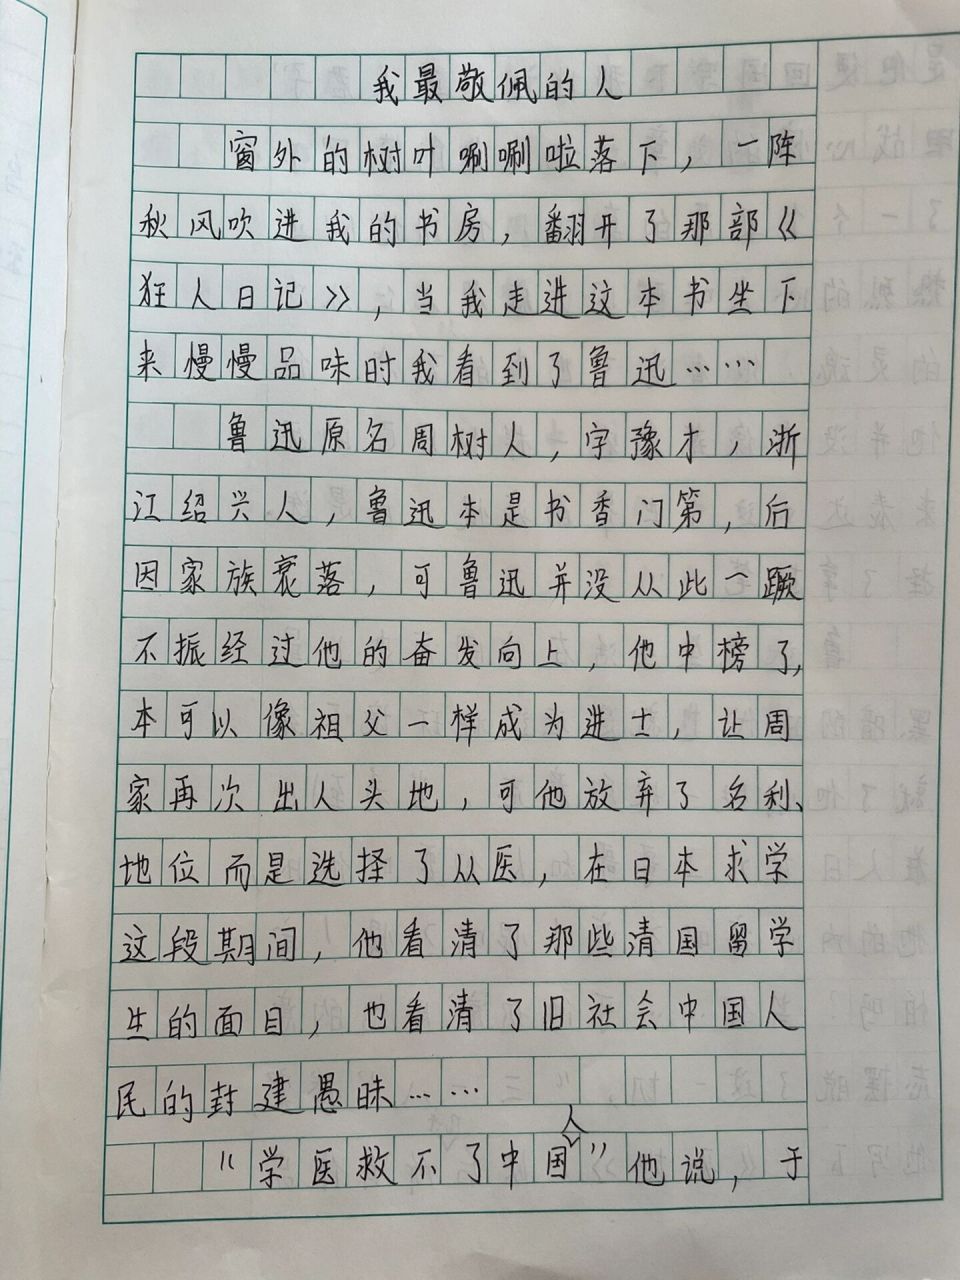 我最敬佩的人
窗外的树叶唰唰啦落下，一阵
秋风吹进我的书房，翻开了那部《
狂人日记》，当我走进这本书坐下
来慢慢品味时我看到了鲁迅……
鲁迅原名周树人，字豫才，浙
江绍兴人，鲁迅本是书香门第，后
因家族衰落，可鲁迅并没从此一蹶
不振经过他的奋发向上，他中榜了，
本可以像祖父一样成为进士，让周
家再次出人头地，可他放弃了名利、
地位而是选择了从医，在日本求学
这段期间，他看清了那些清国留学
生的面目，也看清了旧社会中国人
民的封建愚昧……
“学医救不了中国人”他说，于